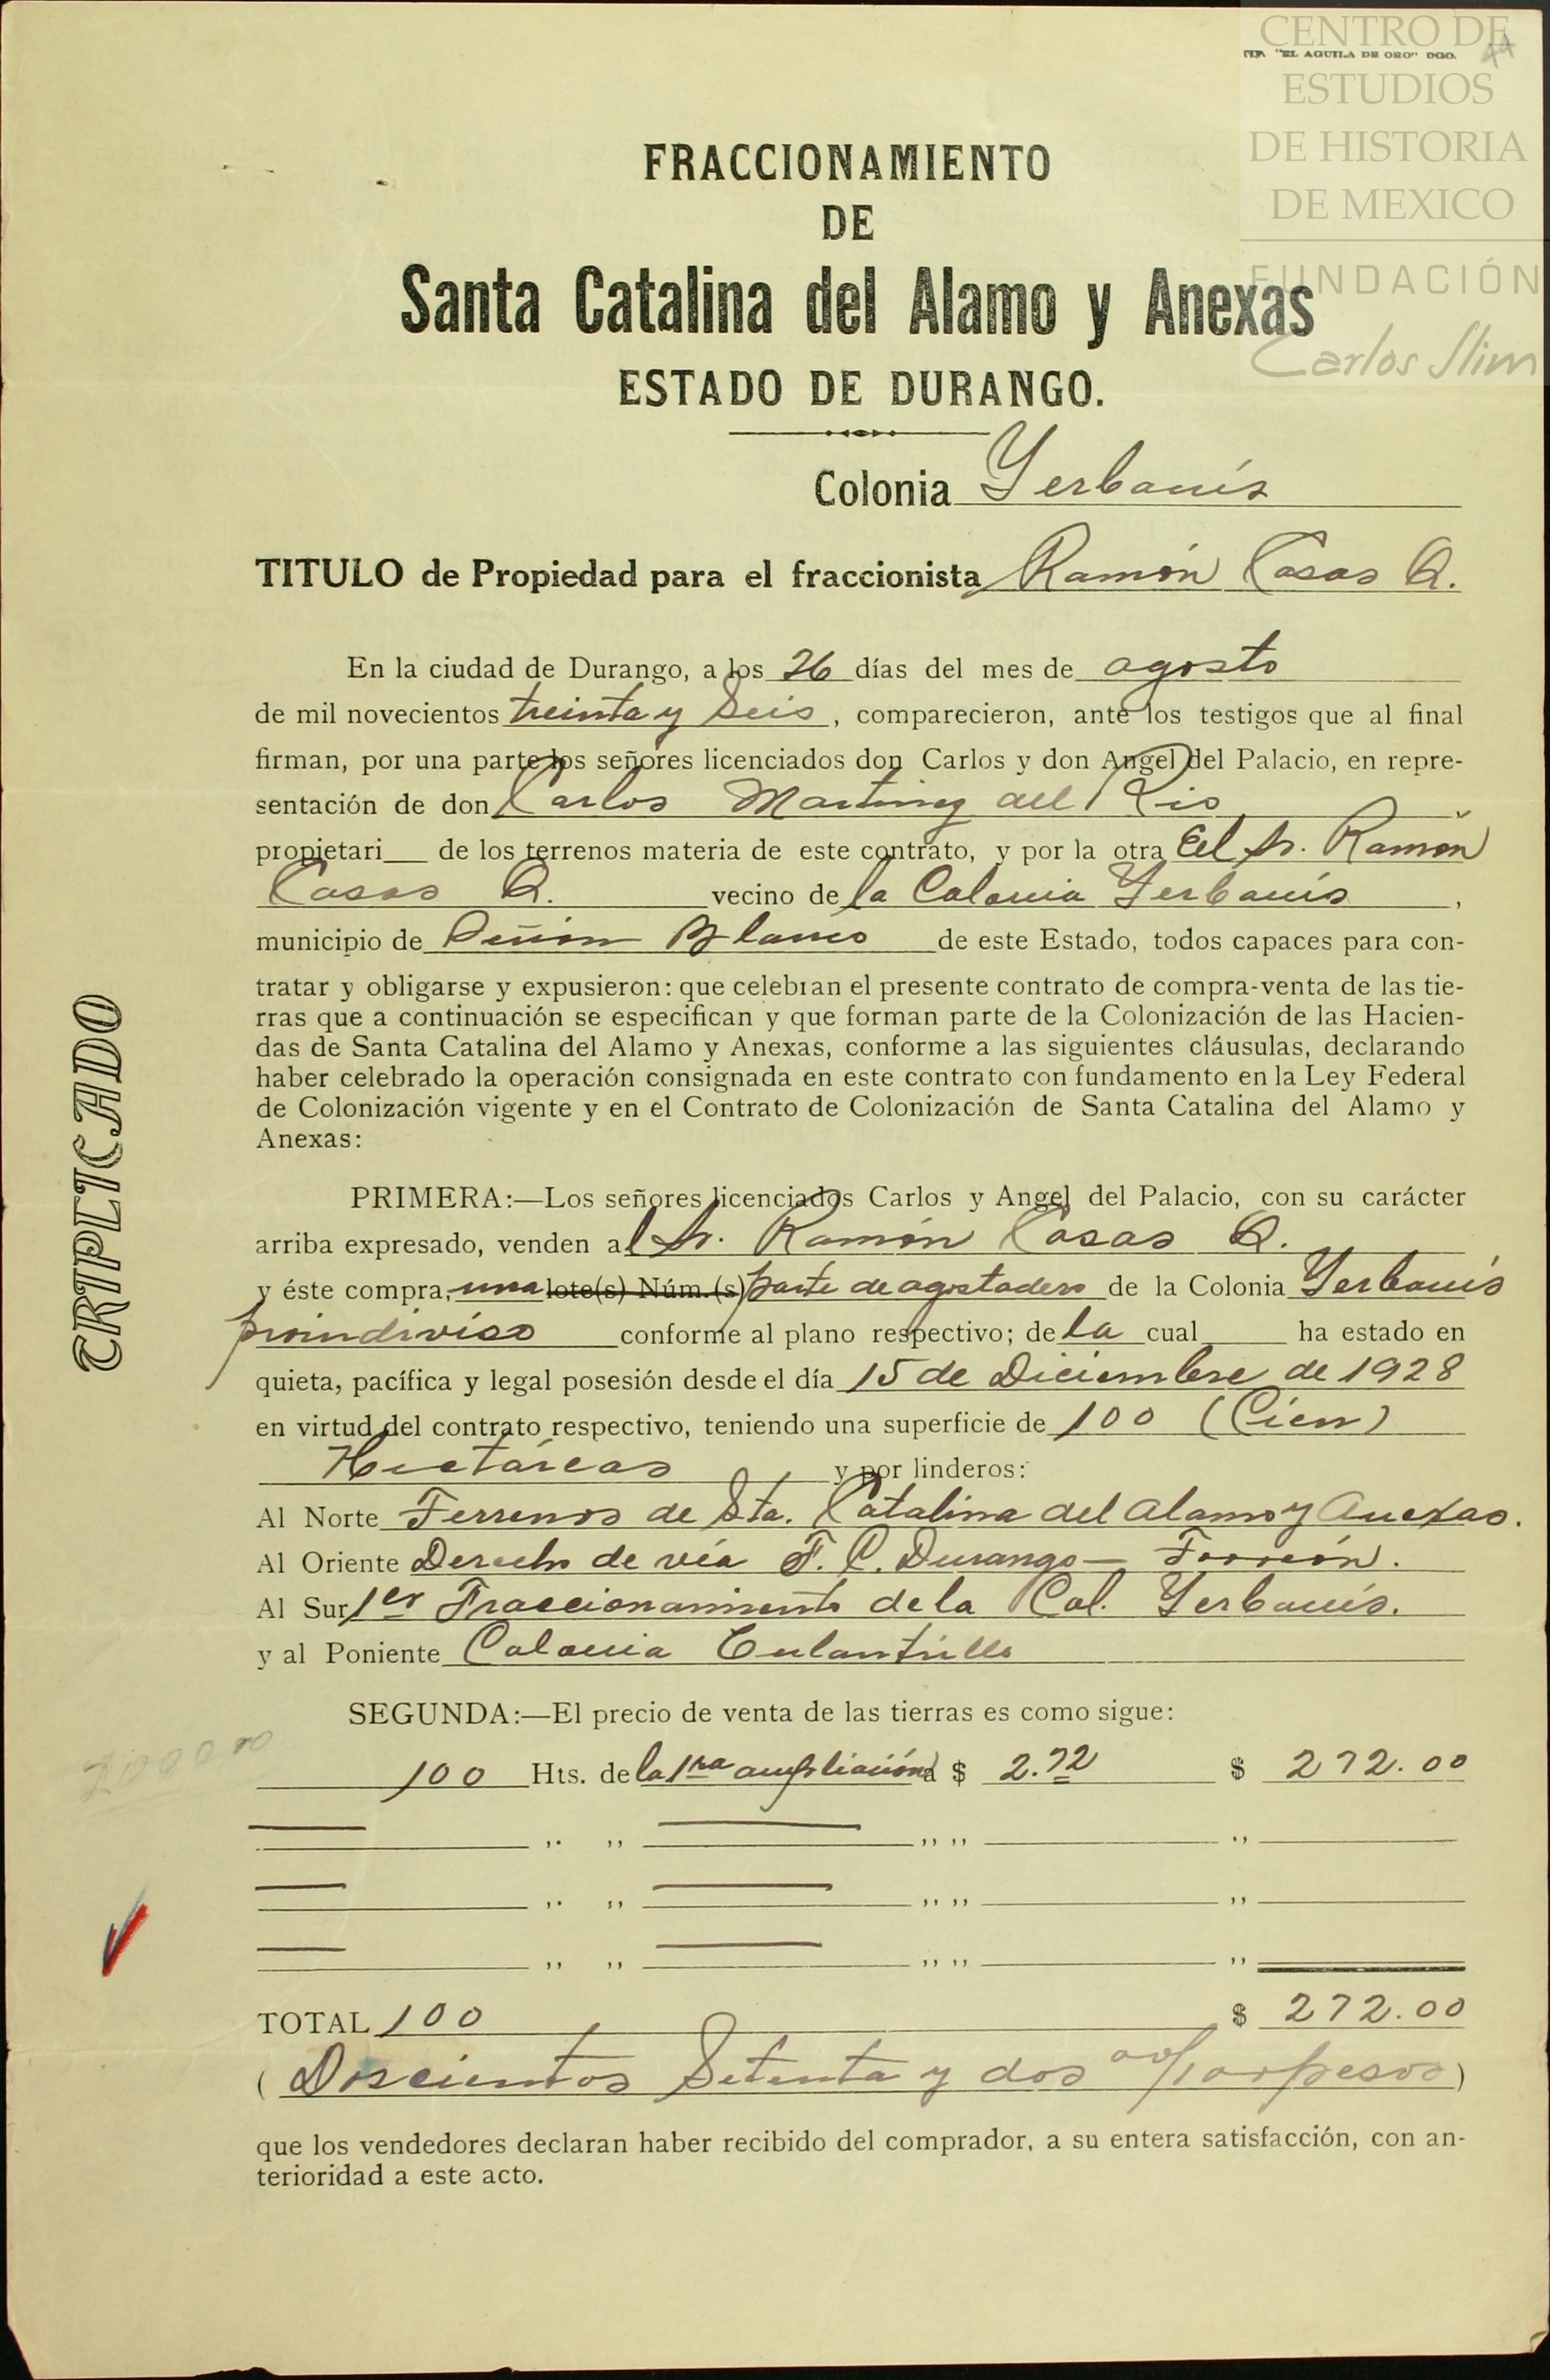 CENTRO DE
TIP. "EL AGUILA DE ORO" DGO.
ESTUDIOS
DE HISTORIA
DE MEXICO
FUNDACIÓN
Carlos Slim
FRACCIONAMIENTO
DE
Santa Catalina del Alamo y Anexas
ESTADO DE DURANGO.
Colonia Yerbanís
TITULO de Propiedad para el fraccionista Ramón Casas Q.
En la ciudad de Durango, a los 26 días del mes de agosto
de mil novecientos treinta y Seis, comparecieron, ante los testigos que al final
firman, por una parte los señores licenciados don Carlos y don Angel del Palacio, en repre-
sentación de don Carlos Martinez del Rio
propietari__ de los terrenos materia de este contrato, y por la otra El Sr. Ramón
Casas Q. vecino de la Colonia Yerbanís,
municipio de Peñón Blanco de este Estado, todos capaces para con-
tratar y obligarse y expusieron: que celebran el presente contrato de compra-venta de las tie-
rras que a continuación se especifican y que forman parte de la Colonización de las Hacien-
das de Santa Catalina del Alamo y Anexas, conforme a las siguientes cláusulas, declarando
haber celebrado la operación consignada en este contrato con fundamento en la Ley Federal
de Colonización vigente y en el Contrato de Colonización de Santa Catalina del Alamo y
Anexas:
TRIPLICADO
PRIMERA:—Los señores licenciados Carlos y Angel del Palacio, con su carácter
arriba expresado, venden al Sr. Ramón Casas Q.
y éste compra, una lote(s) Núm.(s) parte de agostadero de la Colonia Yerbanís
proindiviso conforme al plano respectivo; de la cual ha estado en
quieta, pacífica y legal posesión desde el día 15 de Diciembre de 1928
en virtud del contrato respectivo, teniendo una superficie de 100 (Cien)
Hectáreas y por linderos:
Al Norte Terrenos de Sta. Catalina del Alamo y Anexas.
Al Oriente Derecho de vía F. C. Durango — Torreón.
Al Sur 1er Fraccionamiento de la Col. Yerbanís.
y al Poniente Colonia Culantrillo
SEGUNDA:—El precio de venta de las tierras es como sigue:
100 Hts. de la 1ra ampliación a $ 2.72 $ 272.00
,, ,, ,, ,, ,,
,, ,, ,, ,, ,,
,, ,, ,, ,, ,,
TOTAL 100 $ 272.00
( Doscientos Setenta y dos 00/100 pesos )
que los vendedores declaran haber recibido del comprador, a su entera satisfacción, con an-
terioridad a este acto.